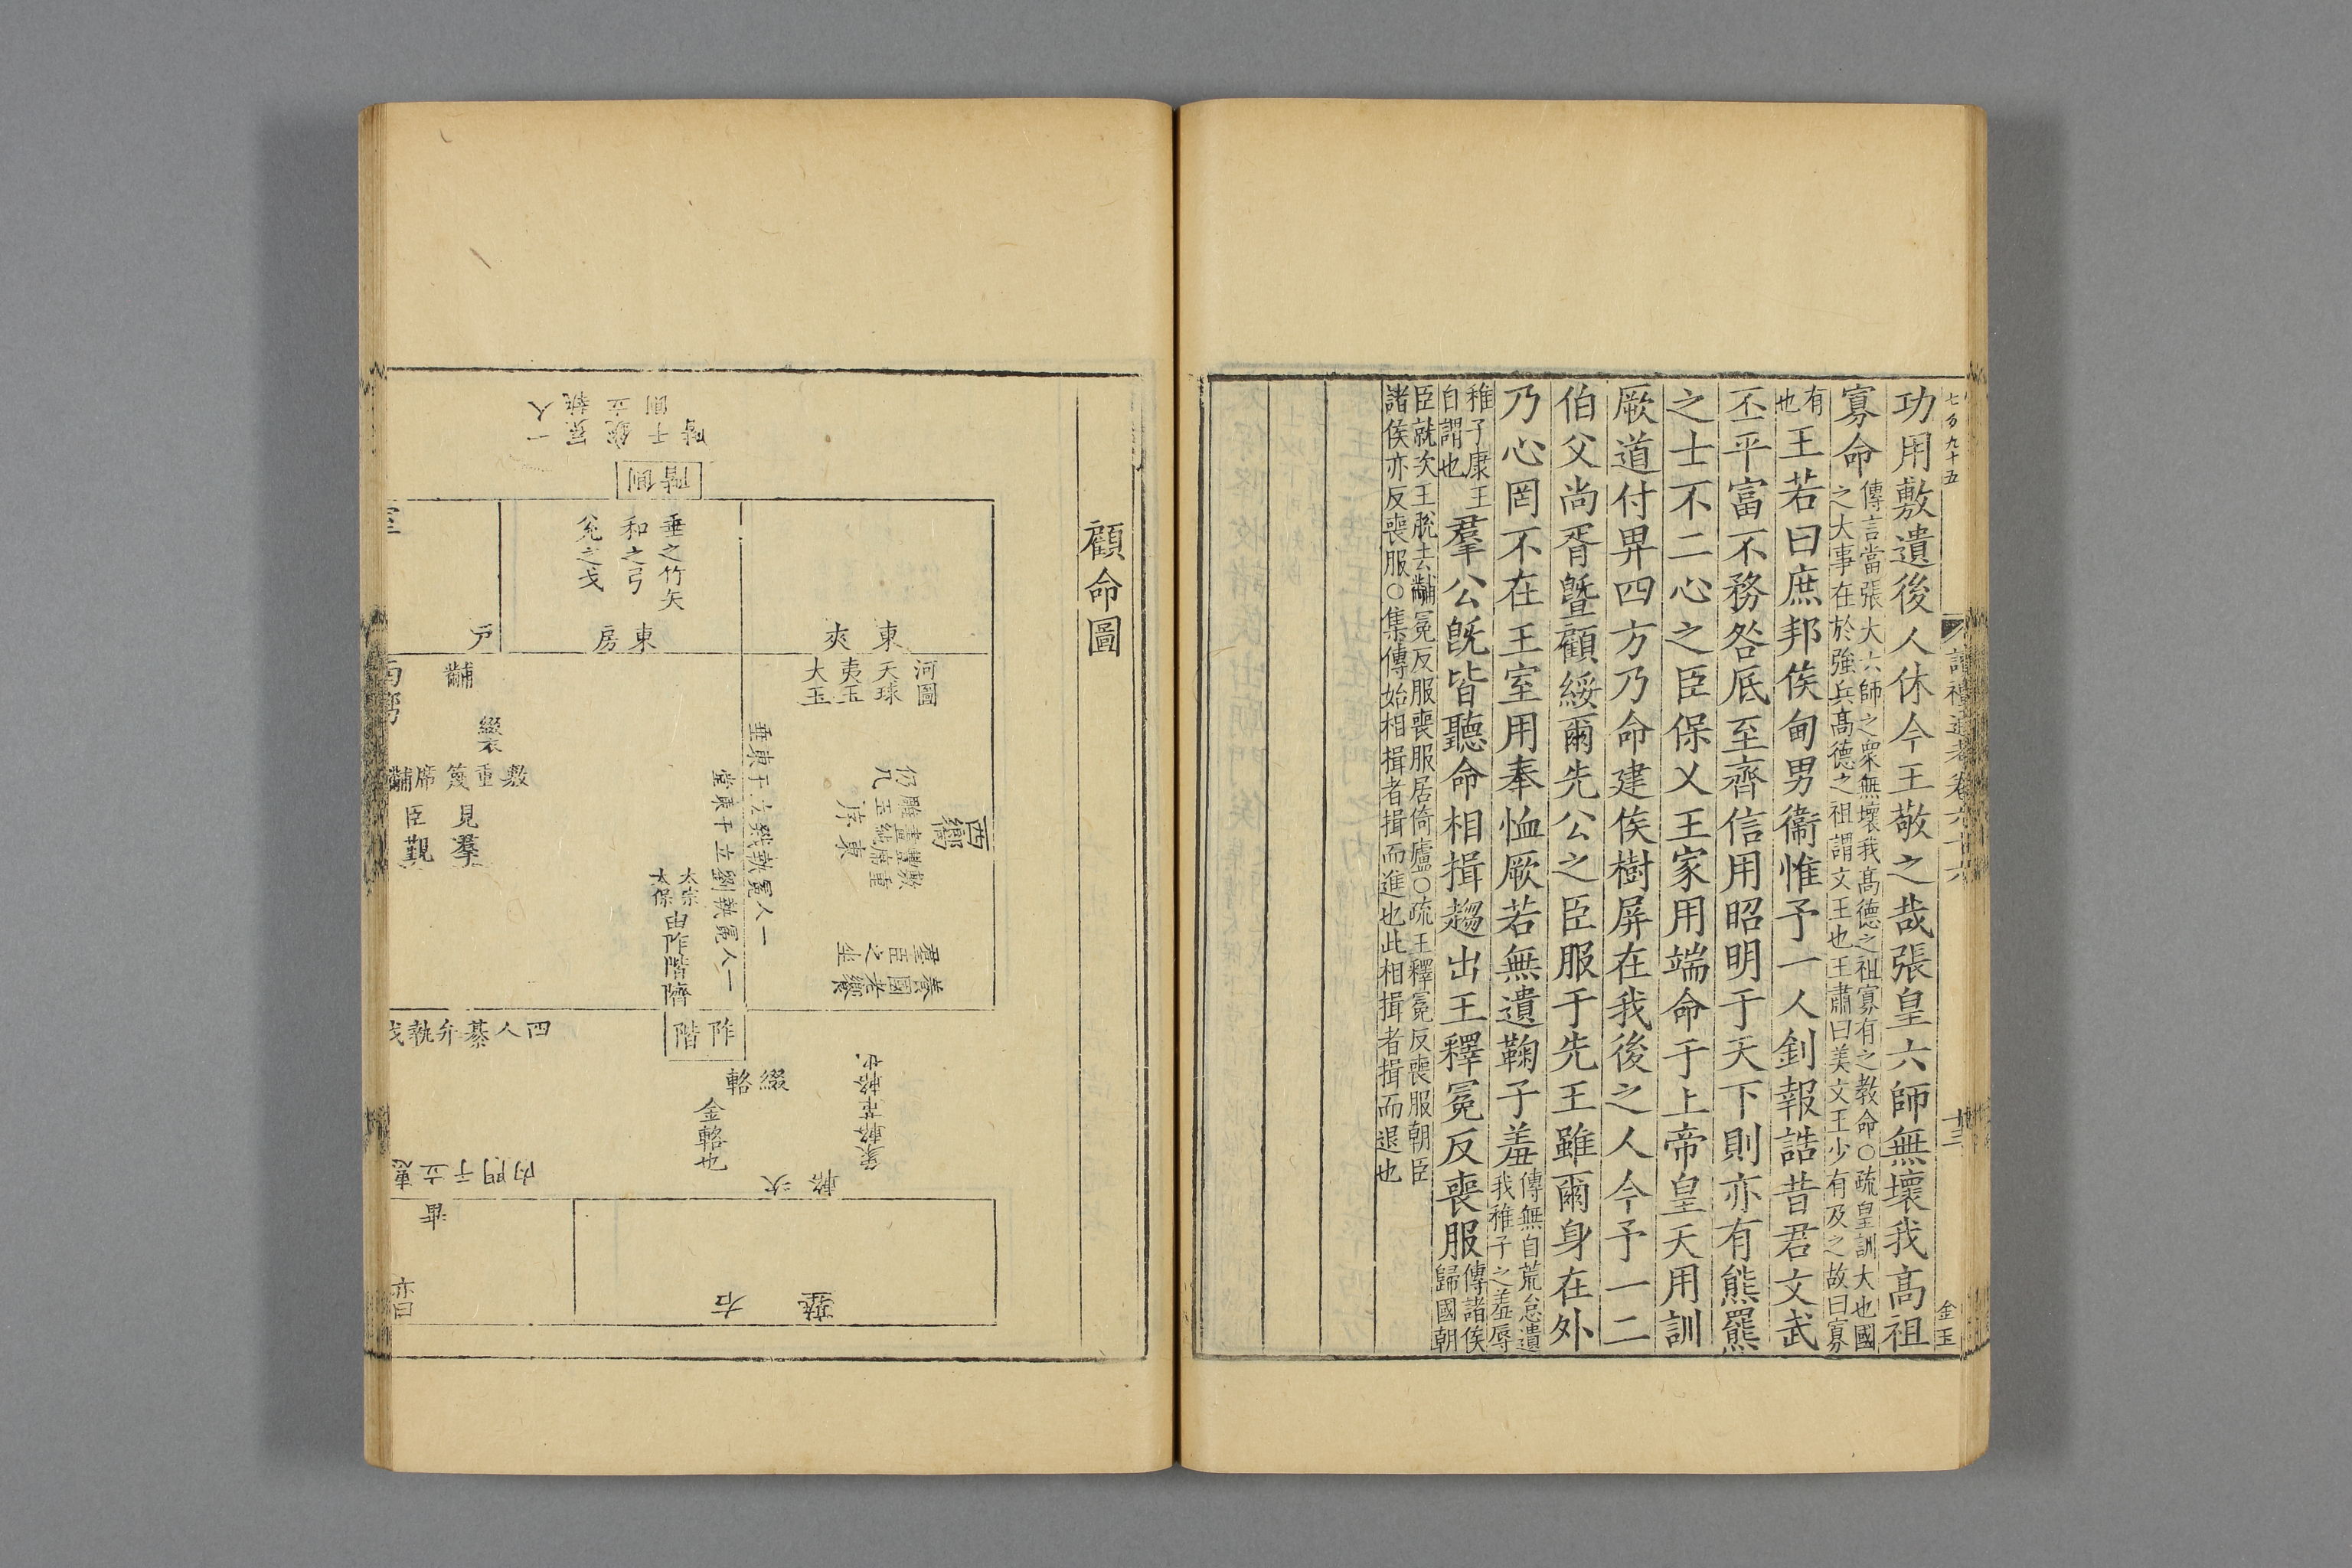 七百九十五
讀禮通考卷六十六
十三
金玉
功用敷遺後人休今王敬之哉張皇六師無壞我高祖
寡命傳言當張大六師之衆無壞我高德之祖寡有之教命○疏皇訓大也國
之大事在於強兵高德之祖謂文王也王肅曰美文王少有及之故曰寡
有
也王若曰庶邦侯甸男衞惟予一人釗報誥昔君文武
丕平富不務咎底至齊信用昭明于天下則亦有熊羆
之士不二心之臣保乂王家用端命于上帝皇天用訓
厥道付畀四方乃命建侯樹屏在我後之人今予一二
伯父尚胥曁顧綏爾先公之臣服于先王雖爾身在外
乃心罔不在王室用奉恤厥若無遺鞠子羞傳無自荒怠遺
我稚子之羞辱
稚子康王
自謂也羣公旣皆聽命相揖趨出王釋冕反喪服傳諸侯
歸國朝
臣就次王脫去黼冕反服喪服居倚廬○疏王釋冕反喪服朝臣
諸侯亦反喪服○集傳始相揖者揖而進也此相揖者揖而退也
顧命圖
階側
側階
垂之竹矢
和之弓
兊之戈
東房
東夾
戶
河圖
天球
夷玉
大玉
西嚮
敷重
豐席畫純
雕玉
仍几
東序
養國老饗
羣臣之坐
一人冕執戣立于東垂
一人冕執劉立于東堂
太宗
太保
由阼階隮
阼階
黼
綴衣
敷重篾席黼
見羣
臣覲
四人綦弁執戈
綴輅
金輅也
次輅
象輅革輅也
右塾